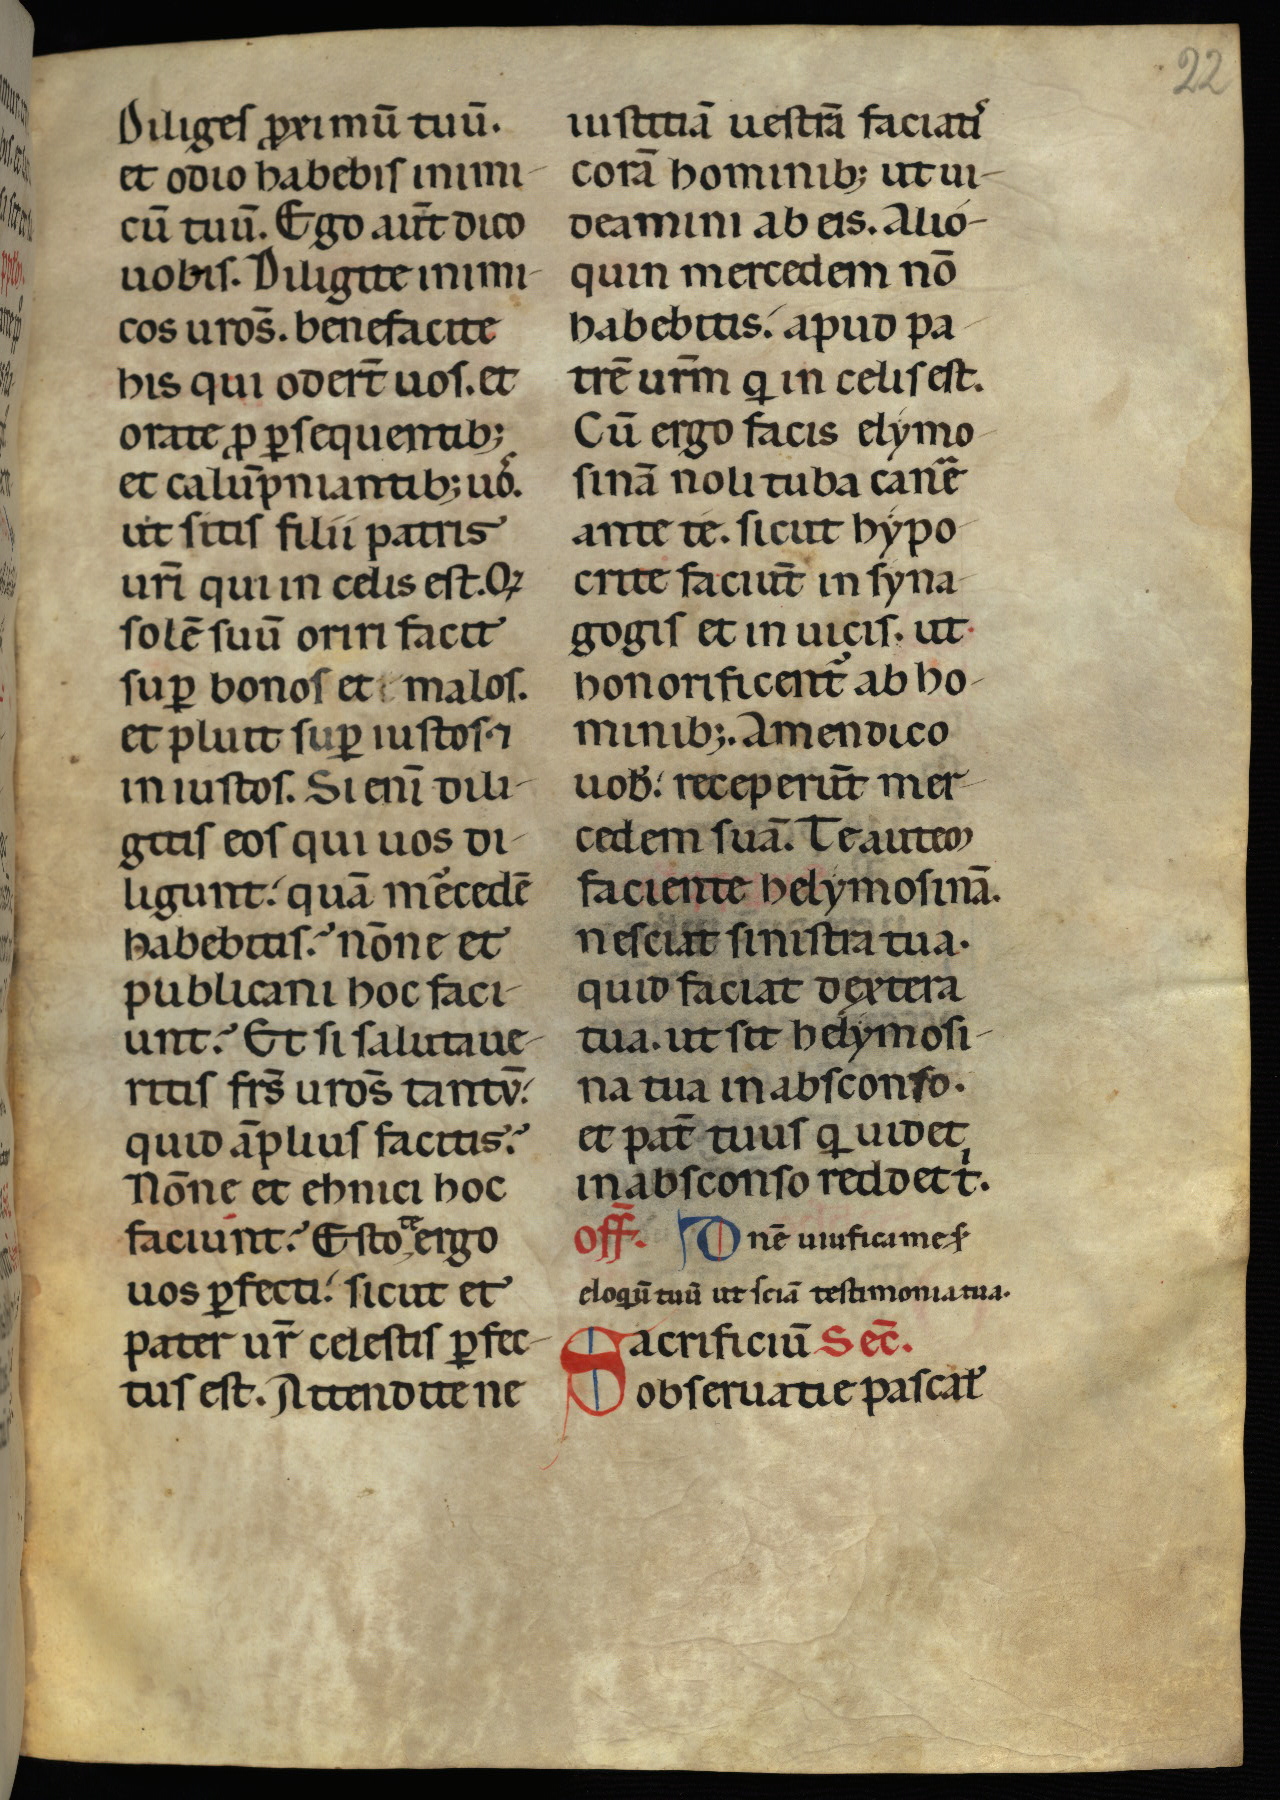 22
Diliges ꝓximū tuū.
et odio habebis inimi-
cū tuū. Ego aut̄ dico
uobis. Diligite inimi-
cos uros̄. benefacite
his qui odert̄ uos. et
orate ꝓ ꝑsequentib;
et calūpniantib; uob̾.
ut sitis filii patris
uri̅ qui in celis est. Qꝫ
solē suū oriri facit
suꝑ bonos et malos.
et pluit suꝑ iustos. ⁊
in iustos. Si enī dili-
gitis eos qui uos di-
ligunt: quā m̄cedē
habebitis? nōne et
publicani hoc faci-
unt? Et si salutaue-
ritis frs̄ uros̄ tantū:
quid āplius facitis?
Nōne et ehnici hoc
faciunt? Estote ergo
uos ꝑfecti: sicut et
pater ur̄ celestis ꝑfec-
tus est. Attendite ne
iustitiā uestrā faciatis
corā hominib; ut ui-
deamini ab eis. Alio-
quin mercedem nō
habebitis: apud pa-
trē urm̄ q in celis est.
Cū ergo facis elymo-
sinā noli tuba canē
ante te. sicut hypo-
crite faciut̄ in syna-
gogis et in uicis. ut
honorificent̾ ab ho-
minib;. Amen dico
uob̾: receperut̄ mer-
cedem suā. Te autem
faciente helymosinā.
nesciat sinistra tua.
quid faciat dextera
tua. ut sit helymosi-
na tua in absconso.
et pat̄ tuus q uidet
in absconso reddet t̄.
Off̄. Dnē uiuifica me s̄
eloqū tuū ut sciā testimonia tua.
Sacrificiū Sec̄.
obseruatie pascal̾